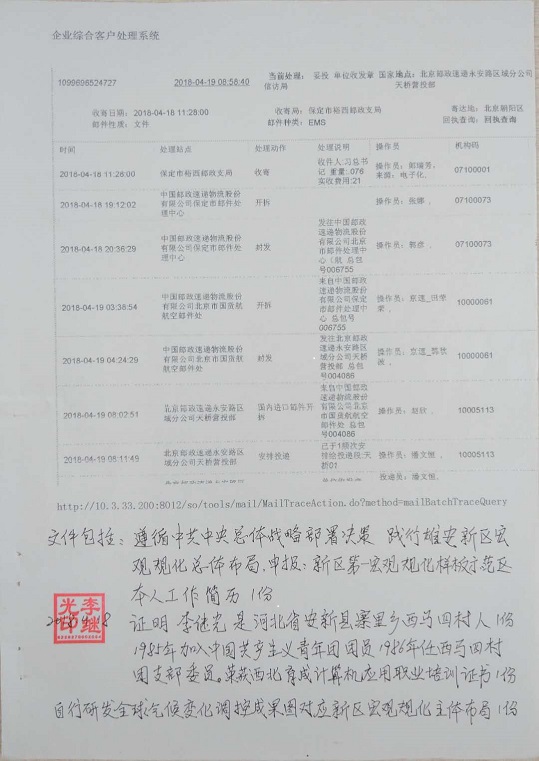 企业综合客户处理系统
1099696524727 2018-04-19 08:58:40 当前处理：妥投 单位收发章 国家信访局 地点：北京邮政速递永安路区域分公司天桥营投部
收寄日期：2018-04-18 11:28:00 收寄局：保定市裕西邮政支局 寄达地：北京朝阳区
邮件性质：文件 邮件种类：EMS 回执查询：回执查询
时间 处理站点 处理动作 处理说明 操作员 机构码
2018-04-18 11:28:00 保定市裕西邮政支局 收寄 收件人:习总书记 重量:076 实收费用:21 操作员：郭瑞芳，来源：电子化， 07100001
2018-04-18 19:12:02 中国邮政速递物流股份有限公司保定市邮件处理中心 开拆 操作员：张娜， 07100073
2018-04-18 20:36:29 中国邮政速递物流股份有限公司保定市邮件处理中心 封发 发往中国邮政速递物流股份有限公司北京市邮件处理中心（航 总包号006755 操作员： 07100073
2018-04-19 03:38:54 中国邮政速递物流股份有限公司北京市国货航航空邮件处 开拆 来自中国邮政速递物流股份有限公司保定市邮件处理中心 总包号006755 操作员：京速_ 10000061
2018-04-19 04:24:29 中国邮政速递物流股份有限公司北京市国货航航空邮件处 封发 发往北京邮政速递永安路区域分公司天桥营投部 总包号004086 操作员：京速_ 10000061
2018-04-19 08:02:51 北京邮政速递永安路区域分公司天桥营投部 国内进口邮件开拆 来自中国邮政速递物流股份有限公司北京市国货航航空邮件处 总包号004086 操作员：赵欣， 10005113
2018-04-19 08:11:49 北京邮政速递永安路区域分公司天桥营投部 安排投递 已于1频次安排给投递段:天桥01 操作员：潘文恒， 10005113
投递员：潘文恒，
http://10.3.33.200:8012/so/tools/mail/MailTraceAction.do?method=mailBatchTraceQuery
文件包括：遵循中共中央总体战略部署决策 践行雄安新区宏
观规化总体布局.申报：新区第一宏观规化样板示范区
本人工作简历 1份
李继光印
证明 李继光是河北省安新县寨里乡西马四村人 1份
1985年加入中国共产主义青年团团员 1986年任西马四村
团支部委员。荣获西北育成计算机应用职业培训证书 1份
自行研发全球气候变化调控成果图对应新区宏观规化主体布局 1份